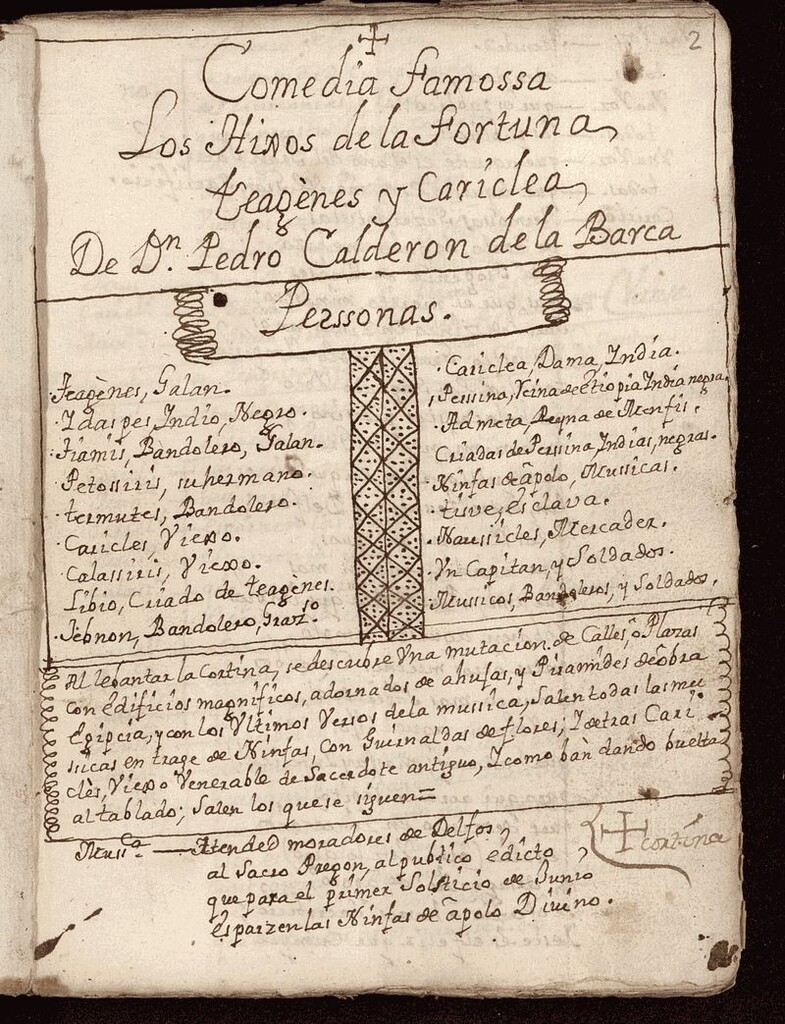 2
Comedia famossa
Los Hixos de la Fortuna,
teagènes y Cariclea,
De Dn. Pedro Calderon de la Barca
Perssonas.
·Teagènes, Galan.
·Ydaspes, Indio, Negro.
·Tiamis, Bandolero, Galan.
·Petossiris, su hermano.
·termutes, Bandolero.
·Caricles, Viexo.
·Calassiris, Viexo.
·Libio, Criado de teagènes.
·Jebnon, Bandolero, Grazso.
·Cariclea, Dama, India.
·Perssina, Reina de Etiopia India negra.
·Admeta, Reyna de Menfis.
Criadas de Perssina, Indias, negras.
·Ninfas de apolo, Mussicas.
·tisve, esclava.
·Naussicles, Mercader.
·Vn Capitan, y Soldados.
·Mussicos, Bandoleros, y Soldados.
Al lebantar la Cortina, se descubre Vna mutacion de Calles, o Plazas
con edificios magnificos, adornados de ahujas, y Piramides de òbra
Egipcia, y con los Vltimos Versos de la mussica, Salen todas las mu
sicas en trage de Ninfas, con Guirnaldas de flores; I detras Cari
clès, Viexo Venerable de Sacerdote antiguo, I como bàn dando buelta
al tablado; Salen los que se siguen=
Mussca — Atended moradores de Delfos,
al Sacro Pregon, al publico edicto,
que para el primer Solsticio de Junio
esparzen las Ninfas de apolo Divino.
cortina